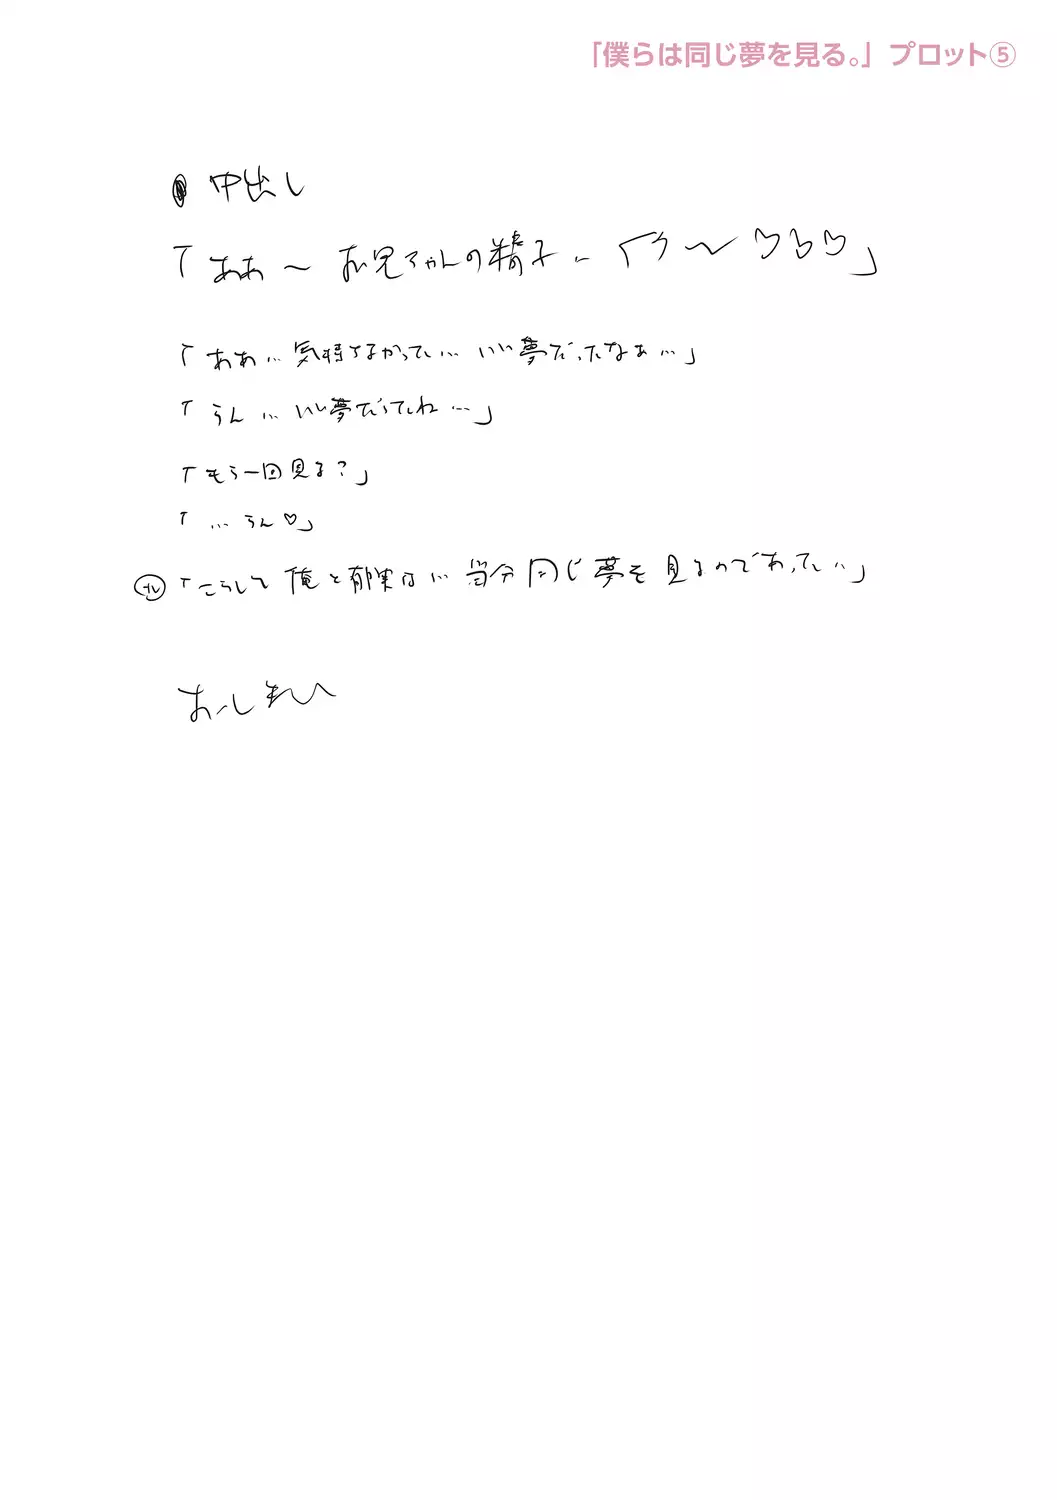 「僕らは同じ夢を見る。」 プロット⑤
中出し
「ああ〜 お兄ちゃんの精子… 〜♡♡♡」
「ああ… 気持ちよかった… いい夢だったなぁ…」
「うん… いい夢だったね…」
「もう一回見る?」
「… うん♡」
ナレ 「こうして 俺と郁実は… 当分 同じ 夢を 見るのであった…」
おーしまい